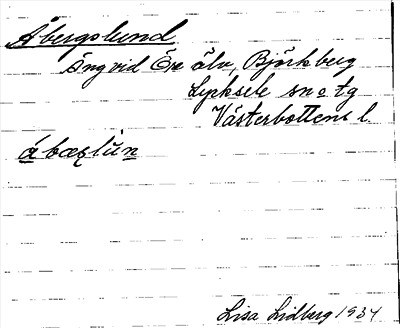 Åbergslund
äng vid Öre älv, Björkberg
Lycksele sn o tg
Västerbottens l.
åbæʀlùn
Lisa Lidberg 1934